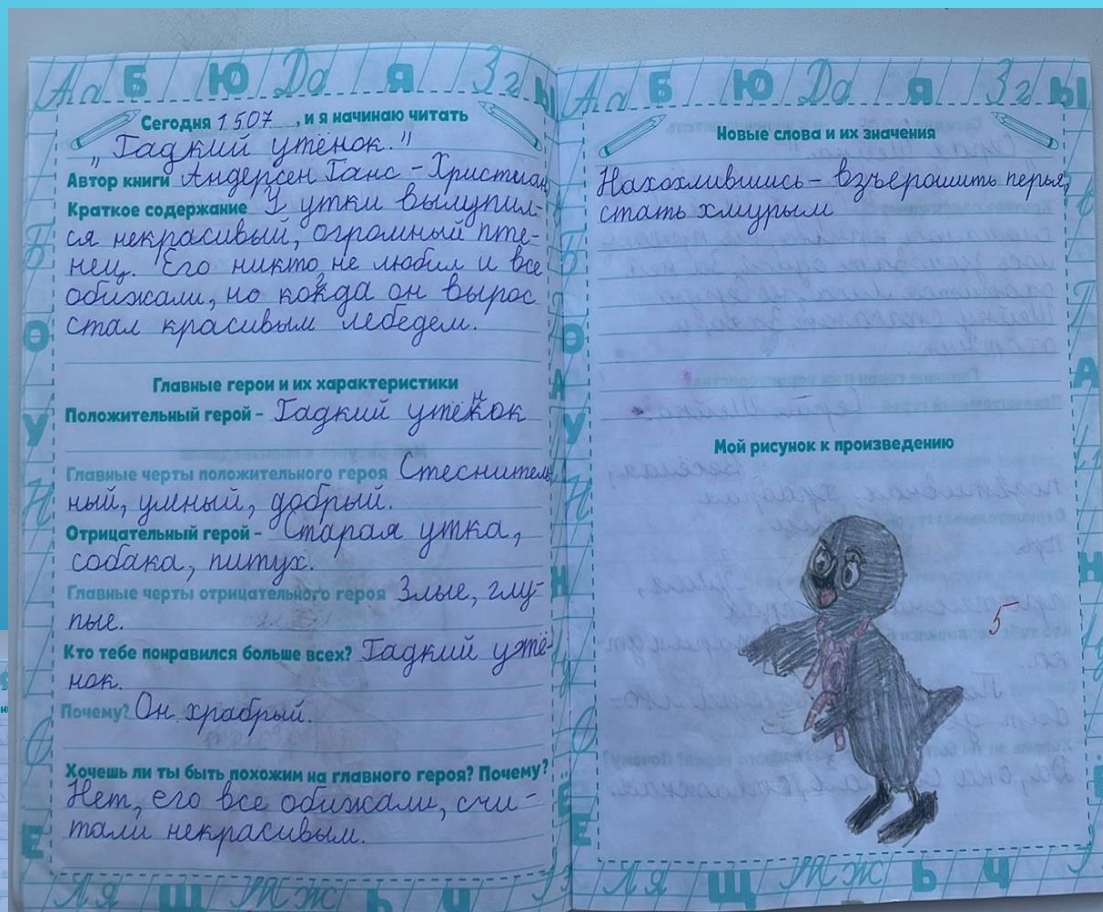 Аа Б Ю Дд Я Зз Ы
Сегодня 15.07 , и я начинаю читать
„Гадкий утёнок."
Автор книги Андерсен Ганс - Христиан
Краткое содержание У утки вылупил-
ся некрасивый, огромный пте-
нец. Его никто не любил и все
обижали, но когда он вырос
стал красивым лебедем.
Главные герои и их характеристики
Положительный герой - Гадкий утёнок
Главные черты положительного героя Стеснитель
ный, умный, добрый.
Отрицательный герой - Старая утка,
собака, питух.
Главные черты отрицательного героя Злые, глу-
пые.
Кто тебе понравился больше всех? Гадкий утё-
нок.
Почему? Он храбрый.
Хочешь ли ты быть похожим на главного героя? Почему?
Нет, его все обижали, счи-
тали некрасивым.
Аа Б Ю Дд Я Зз Ы
Новые слова и их значения
Нахохлившись - взъерошить перья,
стать хмурым
Мой рисунок к произведению
5